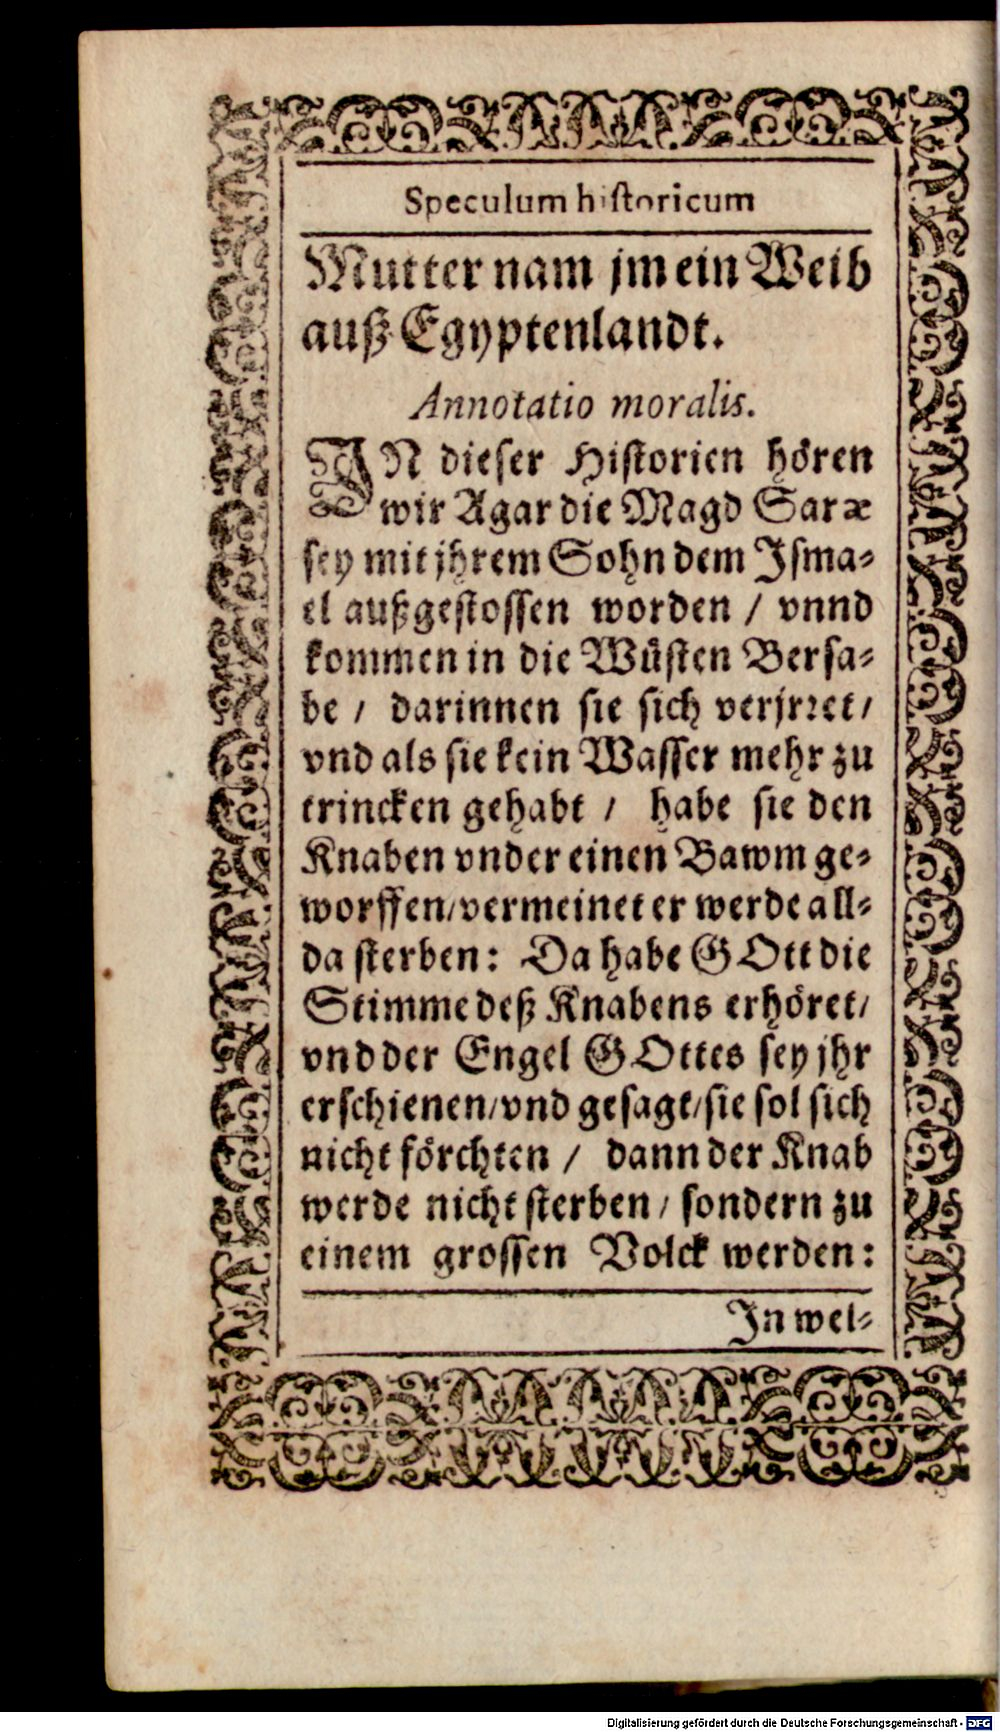 Speculum hiſtoricum
Mutter nam jm ein Weib
auß Egyptenlandt.
Annotatio moralis.
IN dieſer Hiſtorien hören
wir Agar die Magd Saræ
ſey mit jhrem Sohn dem Iſma⸗
el außgeſtoſſen worden / vnnd
kommen in die Wüſten Berſa⸗
be / darinnen ſie ſich verjrꝛet /
vnd als ſie kein Waſſer mehr zu
trincken gehabt / habe ſie den
Knaben vnder einen Bawm ge⸗
worffen / vermeinet er werde all⸗
da ſterben: Da habe GOtt die
Stimme deß Knabens erhöret /
vnd der Engel GOttes ſey jhr
erſchienen / vnd geſagt / ſie ſol ſich
nicht förchten / dann der Knab
werde nicht ſterben / ſondern zu
einem groſſen Volck werden:
In wel⸗
Digitalisierung gefördert durch die Deutsche Forschungsgemeinschaft - DFG